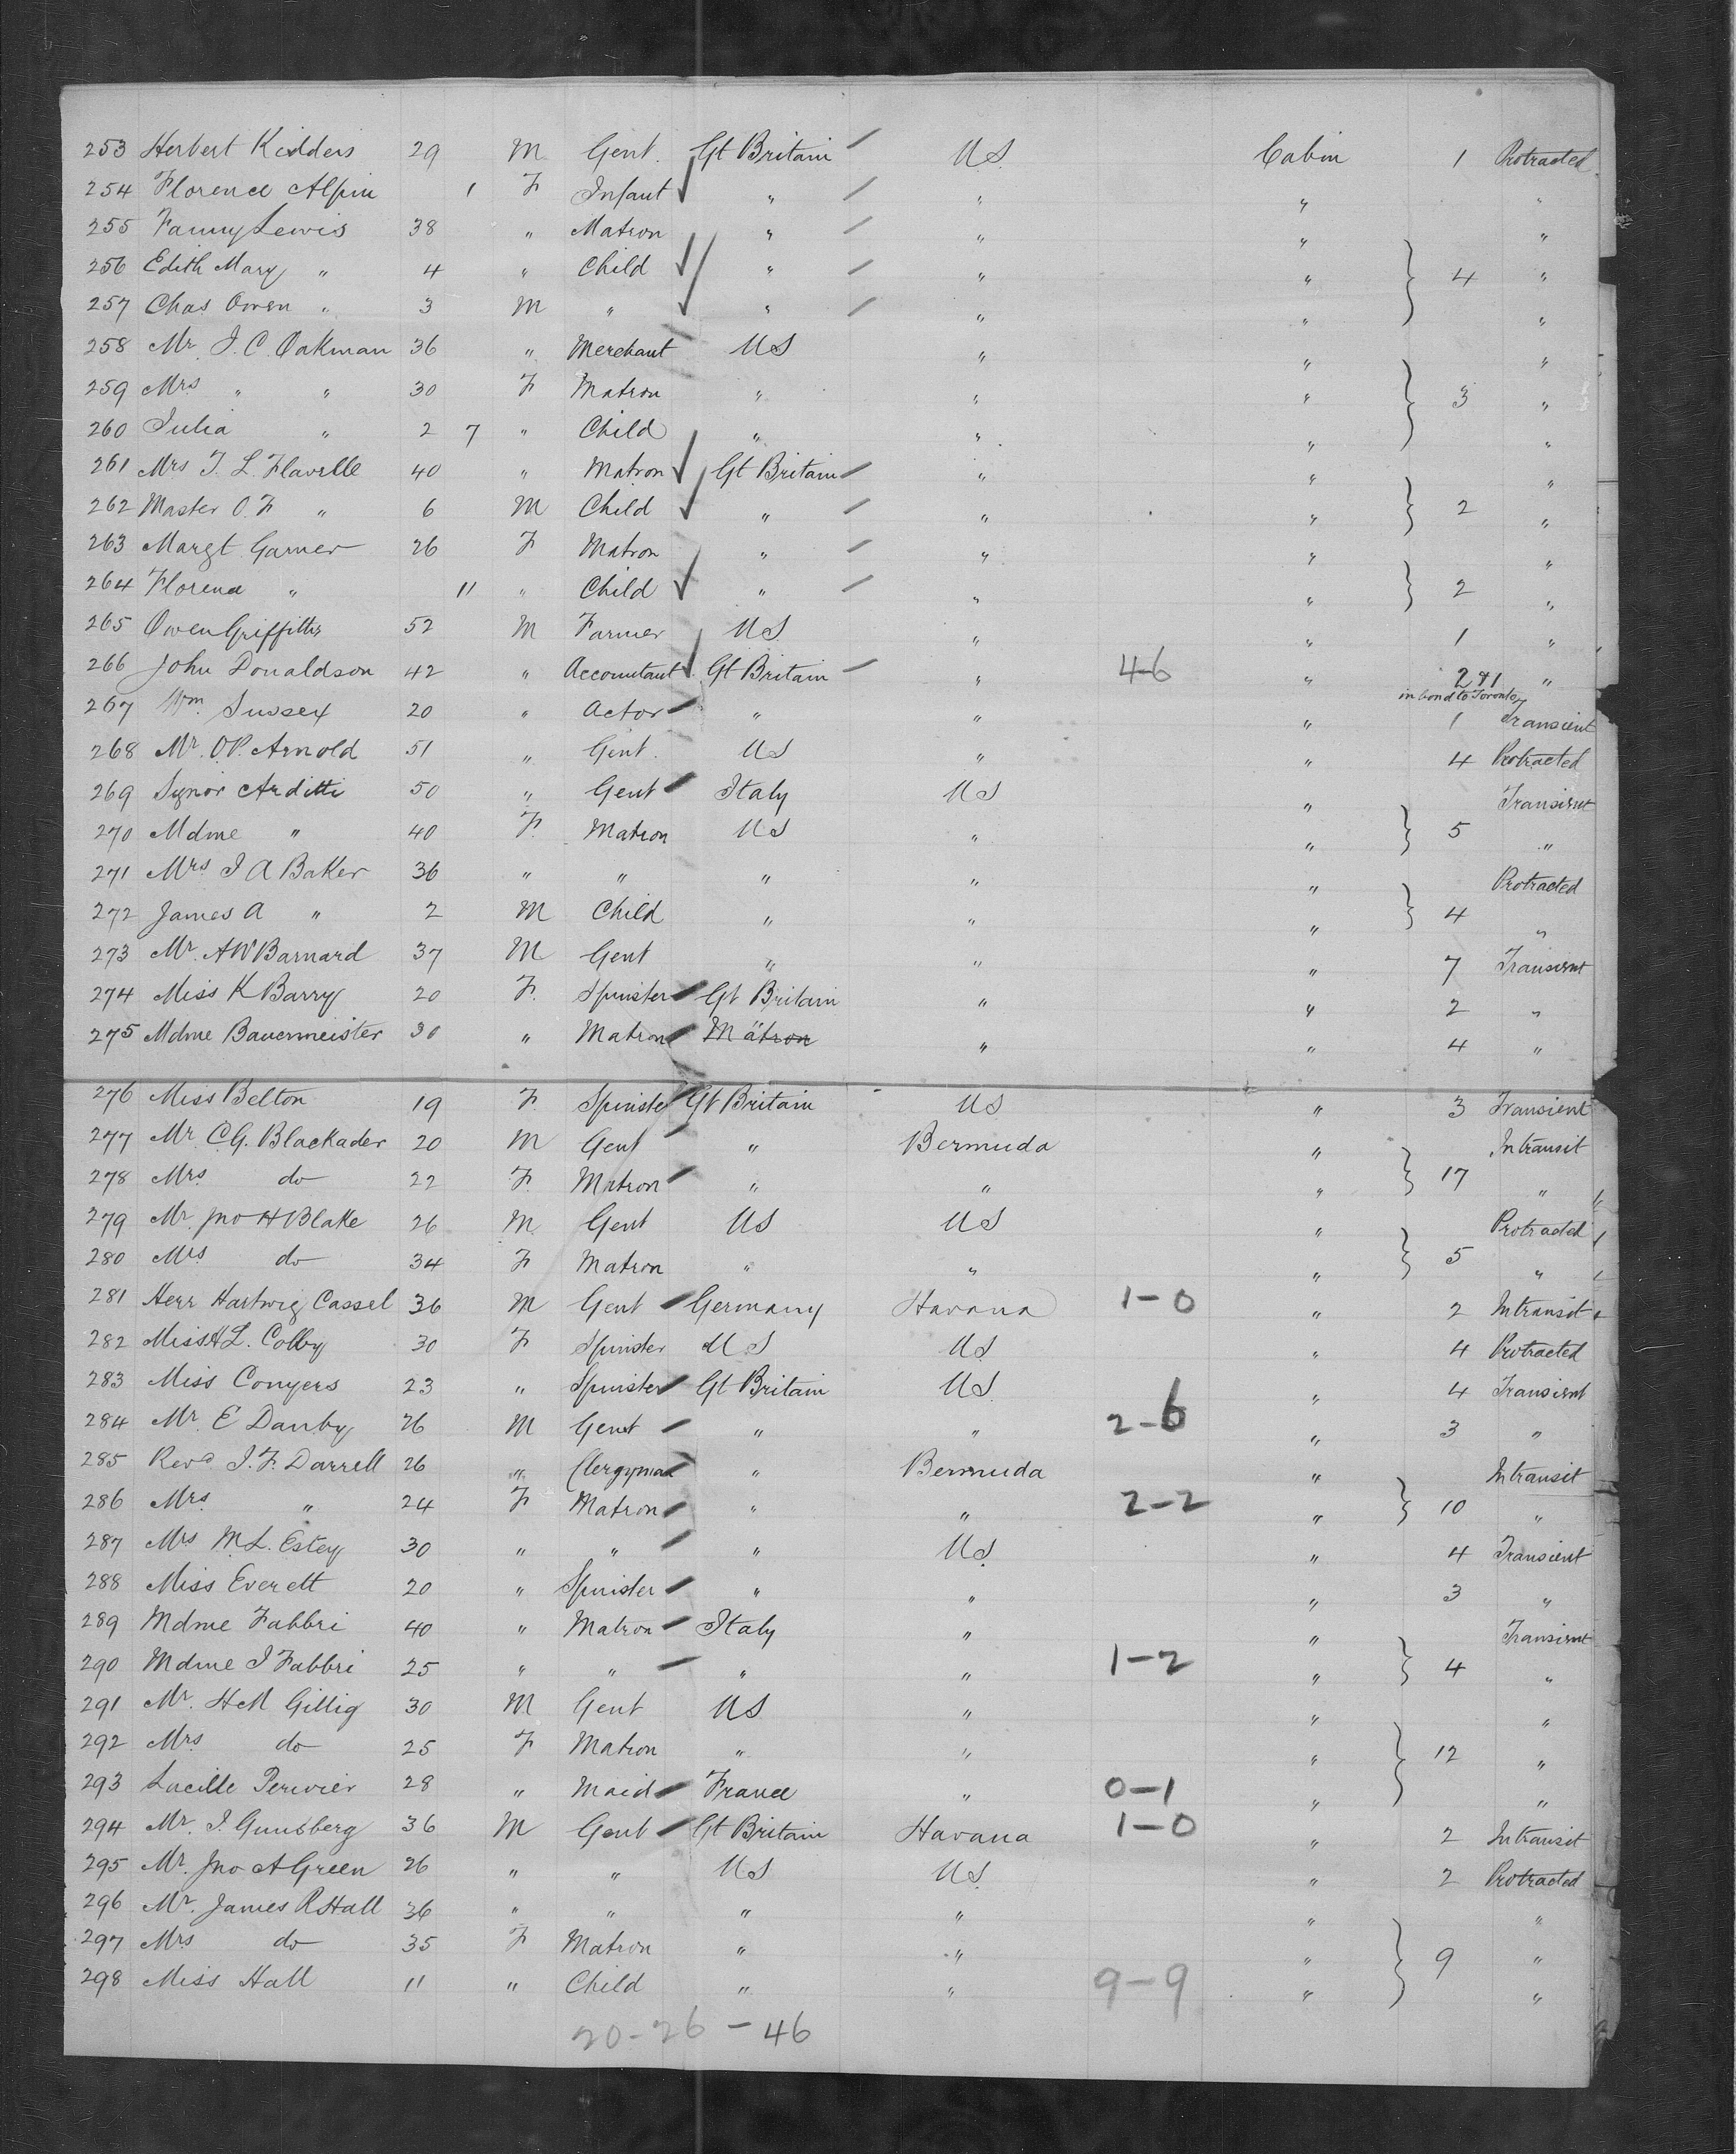 253 Herbert Kidders 29 M Gent. Gt Britain U.S. Cabin 1 Protracted
254 Florence Alpin 1 F Infant " " " "
255 Fanny Lewis 38 " Matron " " " "
256 Edith Mary " 4 " Child " " " 4 "
257 Chas Owen " 3 M " " " " "
258 Mr. J. C. Oakman 36 " Merchant US " " "
259 Mrs " " 30 F Matron " " " 3 "
260 Julia " 2 7 " Child " " " "
261 Mrs T. L. Flavelle 40 " Matron Gt Britain " " "
262 Master O. F " 6 M Child " " " 2 "
263 Margt Garner 26 F Matron " " " "
264 Florence " 11 " Child " " " 2 "
265 Owen Griffiths 52 M Farmer U.S. " " 1 "
266 John Donaldson 42 " Accountant Gt Britain " 4-6 " 2 & 1 "
in bond to Toronto
267 Wm. Sussex 20 " Actor " " " 1 Transient
268 Mr. O.P. Arnold 51 " Gent. US " " 4 Protracted
269 Synor Arditti 50 " Gent Italy US " Transient
270 Mdme " 40 F. Matron US " " 5 "
271 Mrs J A Baker 36 " " " " " Protracted
272 James A " 2 M Child " " " 4 "
273 Mr. A W Barnard 37 M Gent " " " 7 Transient
274 Miss K Barry 20 F. Spinster Gt Britain " " 2 "
275 Mdme Bauermeister 30 " Matron Matron " " " 4 "
276 Miss Belton 19 F. Spinster Gt Britain US " 3 Transient
277 Mr. C. G. Blackader 20 M Gent " Bermuda " Intransit
278 Mrs. do 22 F. Matron " " " 17 "
279 Mr. Jno H Blake 26 M Gent US US " Protracted
280 Mrs do 34 F Matron " " " 5 "
281 Herr Hartwig Cassel 36 M Gent Germany Havana 1-0 " 2 Intransit
282 Miss H L. Colby 30 F Spinster US US " 4 Protracted
283 Miss Conyers 23 " Spinster Gt Britain US " 4 Transient
284 Mr. E Danby 26 M Gent " " 2-6 " 3 "
285 Revd. J. F. Darrell 26 " Clergyman " Bermuda " Intransit
286 Mrs. " 24 F Matron " " 2-2 " 10 "
287 Mrs M. L. Estey 30 " " " US. " 4 Transient
288 Miss Everett 20 " Spinster " " " 3 "
289 Mdme Fabbri 40 " Matron Italy " " Transient
290 Mdme J Fabbri 25 " " " " 1-2 " 4 "
291 Mr. H M Gillig 30 M Gent US " " "
292 Mrs. do 25 F Matron " " " 12 "
293 Lucille Perivier 28 " Maid France " 0-1 " "
294 Mr. J. Gunsberg 36 M Gent Gt Britain Havana 1-0 " 2 Intransit
295 Mr. Jno A Green 26 " " US US. " 2 Protracted
296 Mr. James R Hall 36 " " " " " "
297 Mrs do 35 F Matron " " " 9 "
298 Miss Hall 11 " Child " " 9-9 " "
20-26-46